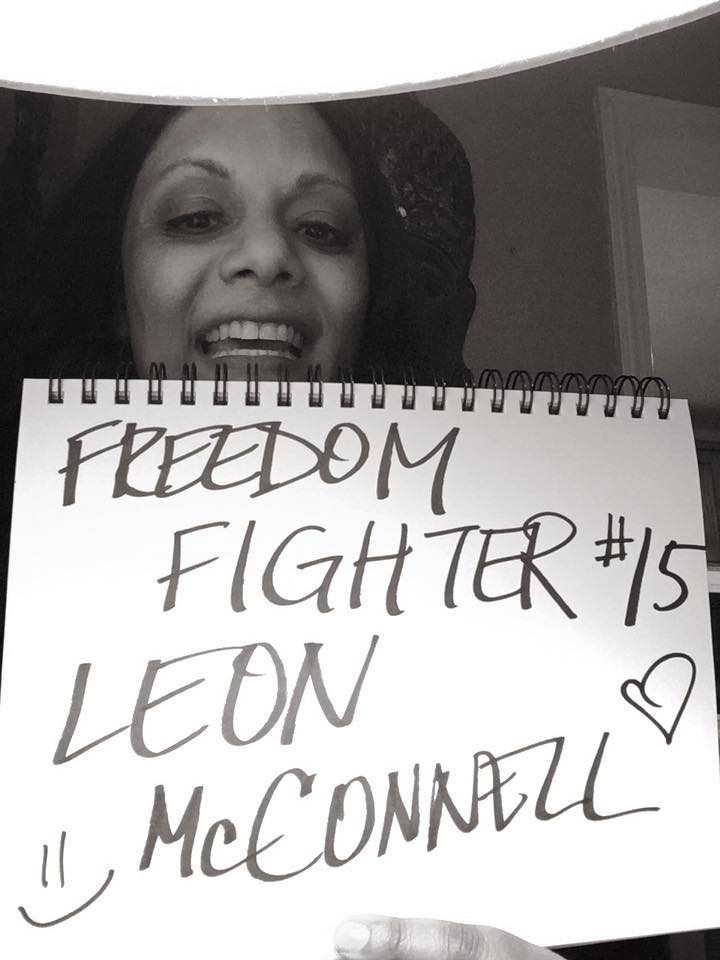 FREEDOM
FIGHTER #15
LEON
McCONNELL